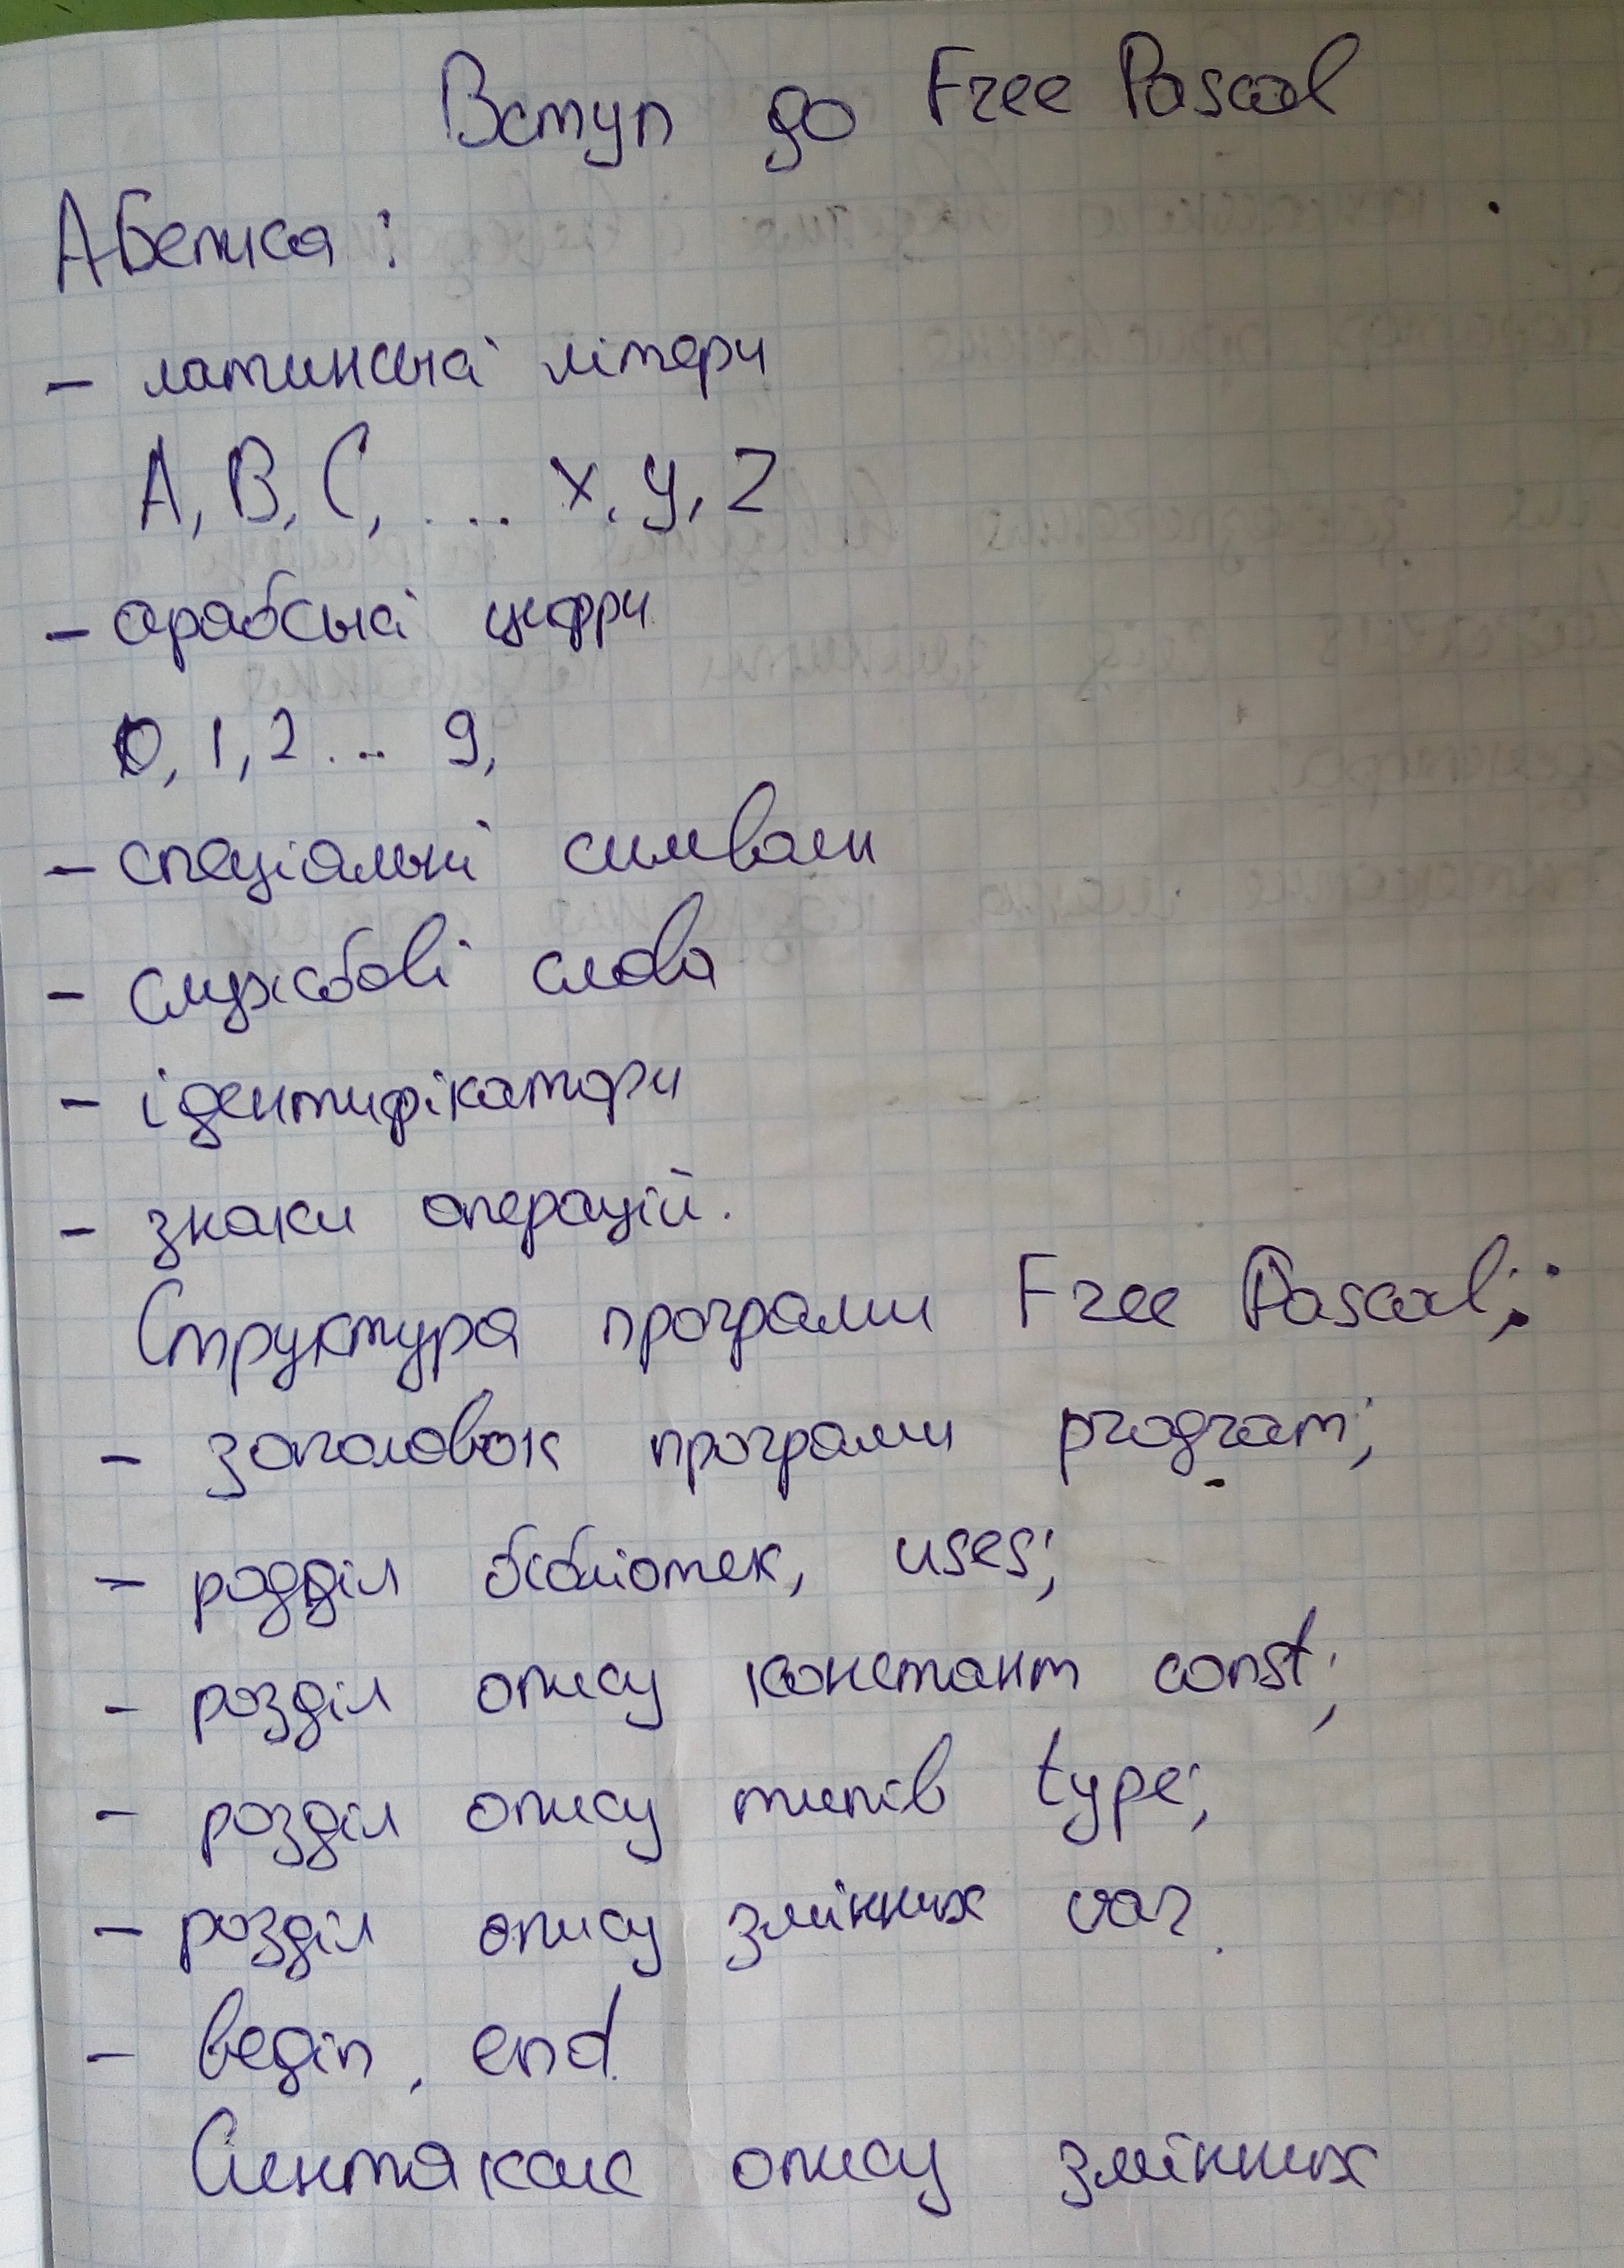 Вступ до Free Pascal
Абетка:
- латинські літери
A, B, C, .... x, y, z
- арабські цифри
0, 1, 2 ... 9,
- спеціальні символи
- службові слова
- ідентифікатори
- знаки операцій.
Структура програми Free Pascal;:
- заголовок програми program;
- розділ бібліотек, uses;
- розділ опису констант const;
- розділ опису типів type;
- розділ опису змінних var.
- begin, end.
Синтаксис опису змінних